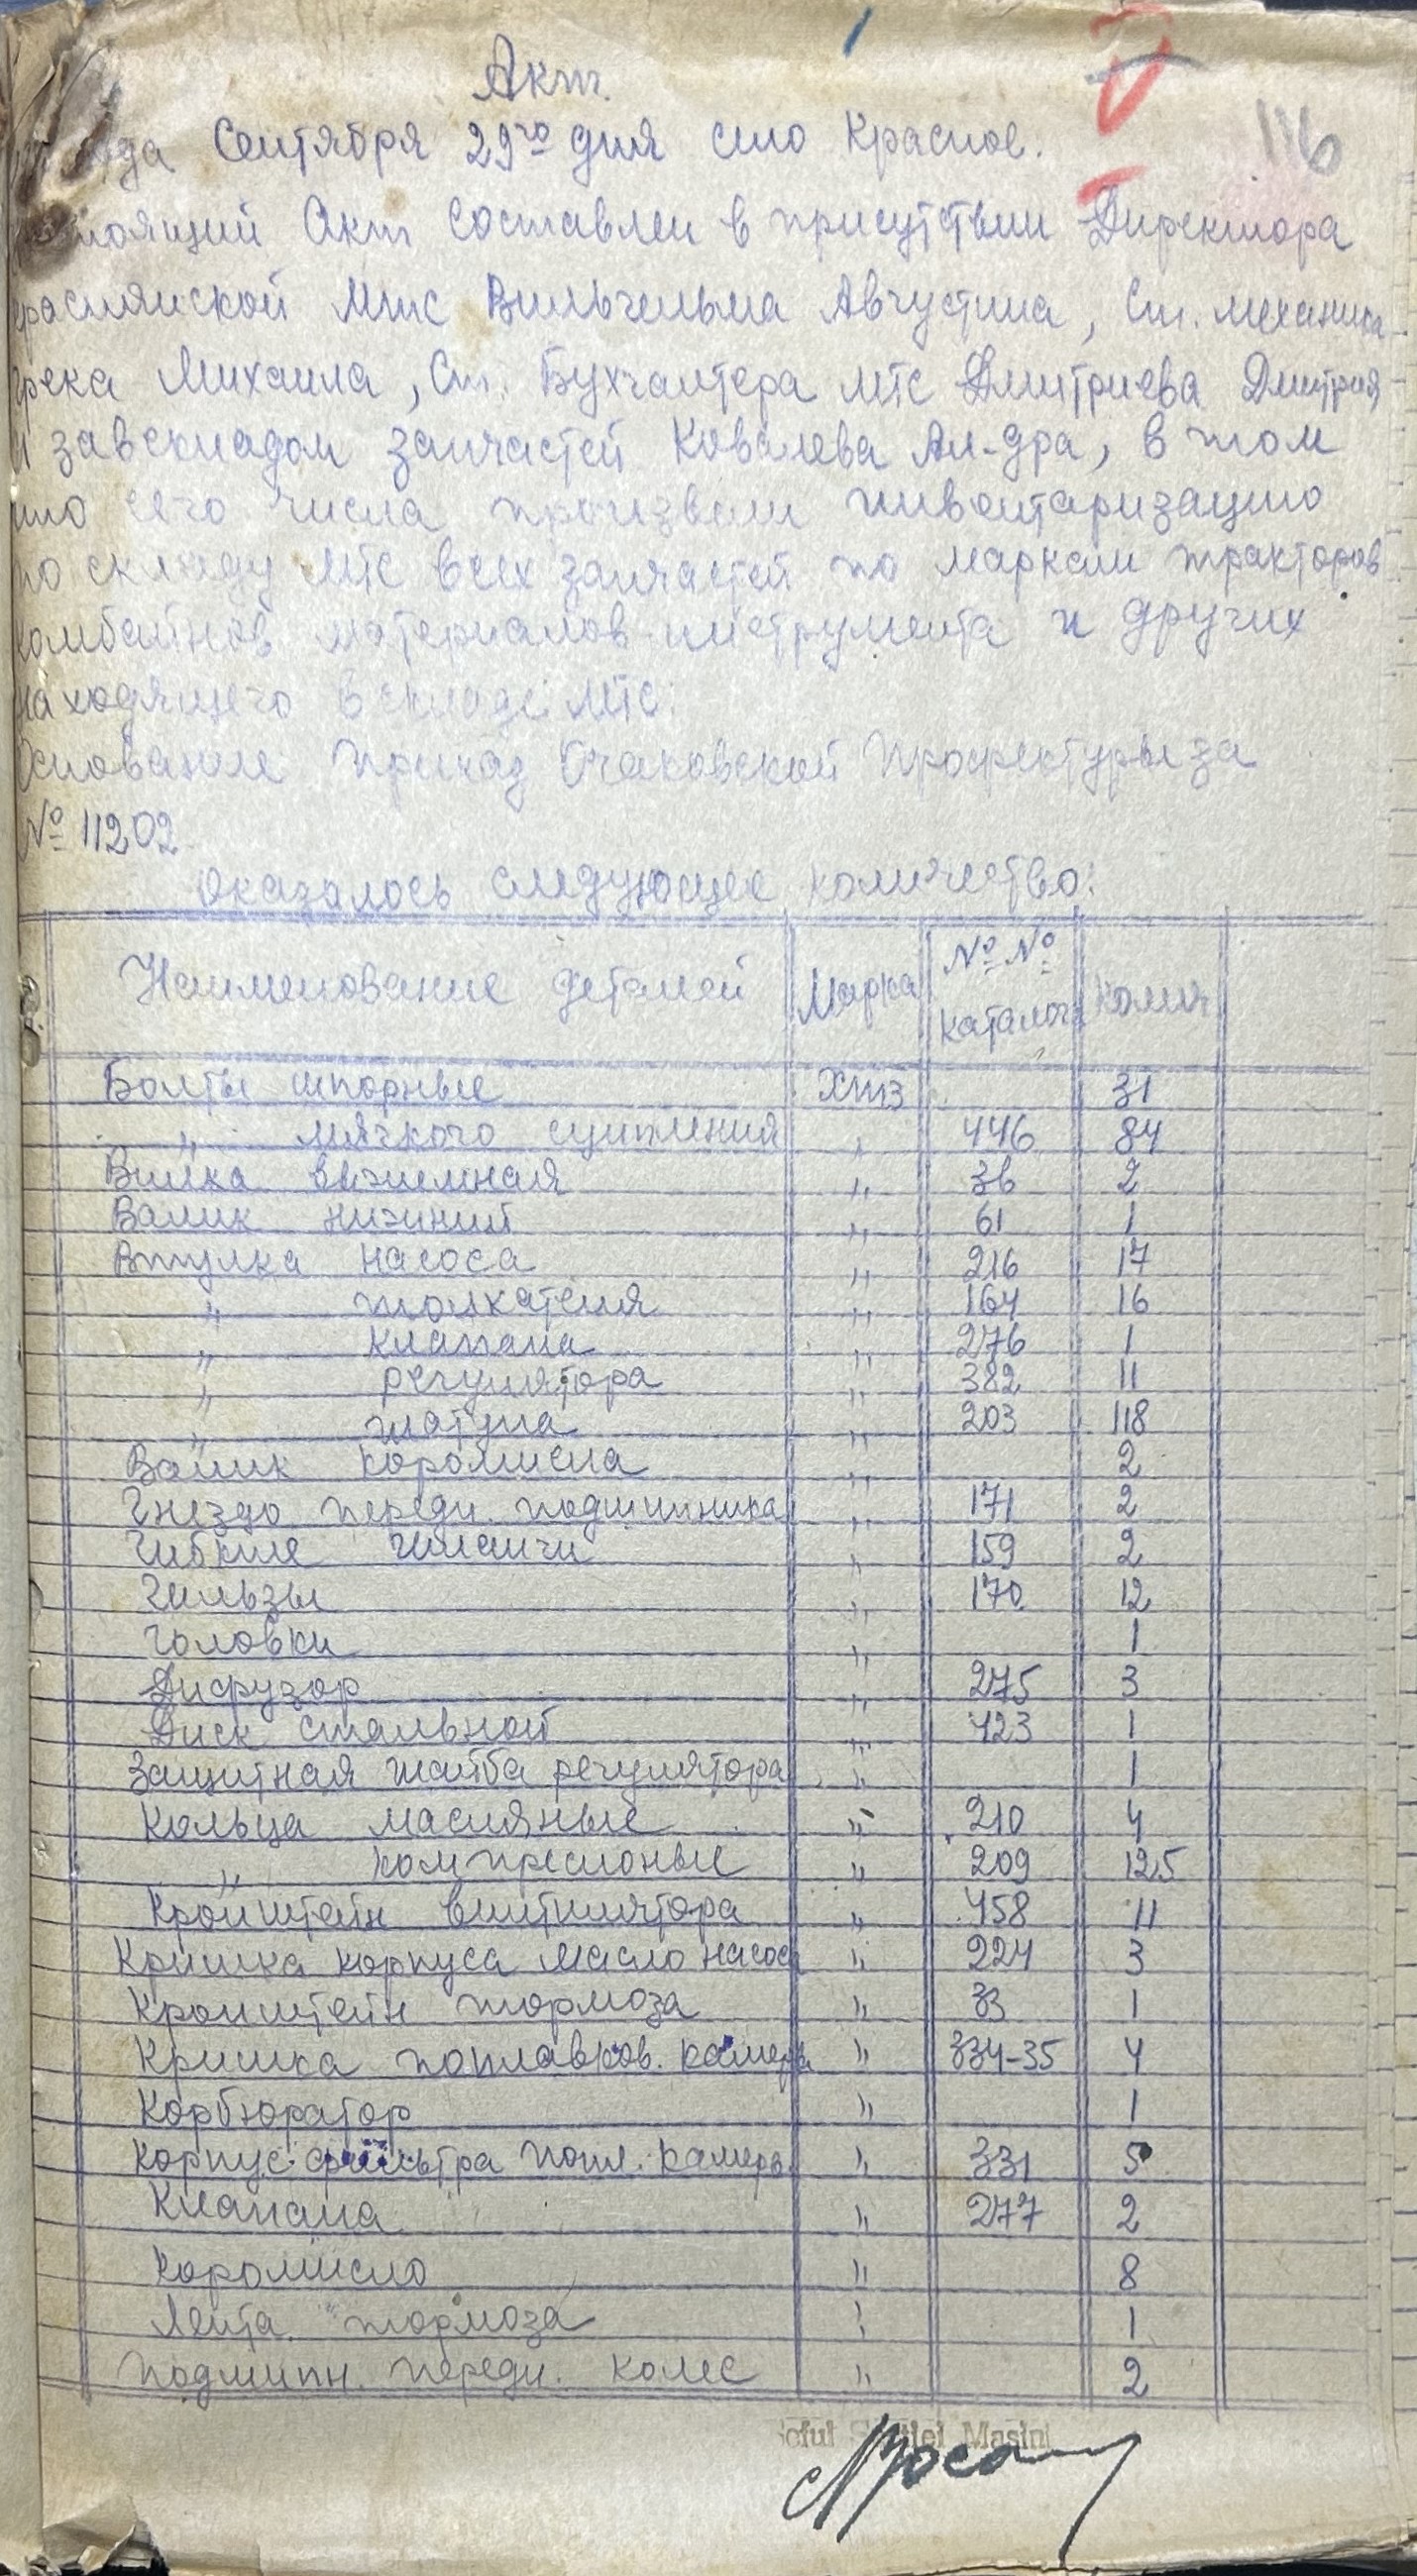 116
Акт
года Сентября 29го дня село Красное.
стоящий Акт составлен в присутствии Директора
краснянской Мтс Вильгельма Августина, Ст. механика
Грека Михаила, Ст. Бухгалтера МТС Дмитриева Дмитрия
и завскладом запчастей Ковалева Ал-дра, в том
что сего числа произвели инвентаризацию
по складу МТС всех запчастей по маркам тракторов
комбайнов материалов инструмента и других
находящего в складе МТС.
Основание приказ Очаковской Профектуры за
№ 11202
оказалось следующее количество:
Наименование деталей Марка №№ каталог Колич
Болты шпорные хтз 31
„ мягкого сципления „ 446 84
Вилка выжимная „ 36 2
Валик нижний „ 61 1
Втулка насоса „ 216 17
„ толкателя „ 164 16
„ клапана „ 276 1
„ регулятора „ 382 11
„ шатуна „ 203 118
Валик коромысла „ 2
Гнездо передн. подшипника „ 171 2
Гибкие шланги „ 159 2
Гильзы „ 170 12
Головки „ 1
Дифузор „ 275 3
Диск стальной „ 423 1
Защитная шайба регулятора „ 1
Кольца масляные „ 210 4
„ компресионые „ 209 125
Кронштейн винтилятора „ 458 11
Кришка корпуса масло насоса „ 224 3
Кронштейн тормоза „ 33 1
Кришка поплавков. камеры „ 334-35 4
Корбюратор „ 1
Корпус фильтра попл. камеры „ 331 5
Клапана „ 277 2
Коромисло „ 8
Лента тормоза „ 1
Подшипн. передн. колес „ 2
Mașini